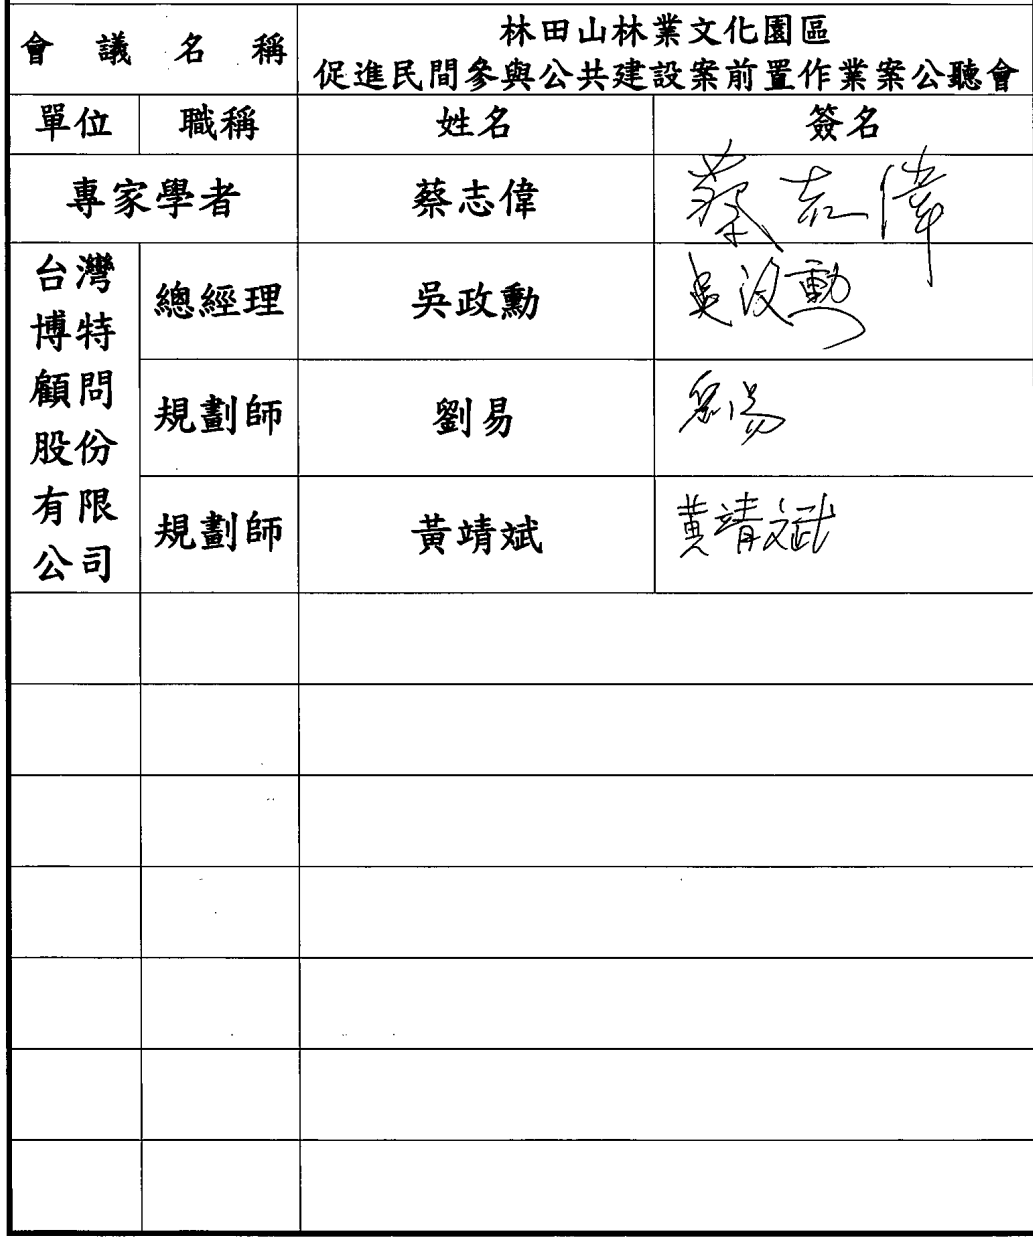 會議名稱
林田山林業文化園區
促進民間參與公共建設案前置作業案公聽會
單位 職稱 姓名 簽名
專家學者 蔡志偉 蔡志偉
台灣
博特
顧問
股份
有限
公司
總經理 吳政勳 吳政勳
規劃師 劉易 劉易
規劃師 黃靖斌 黃靖斌